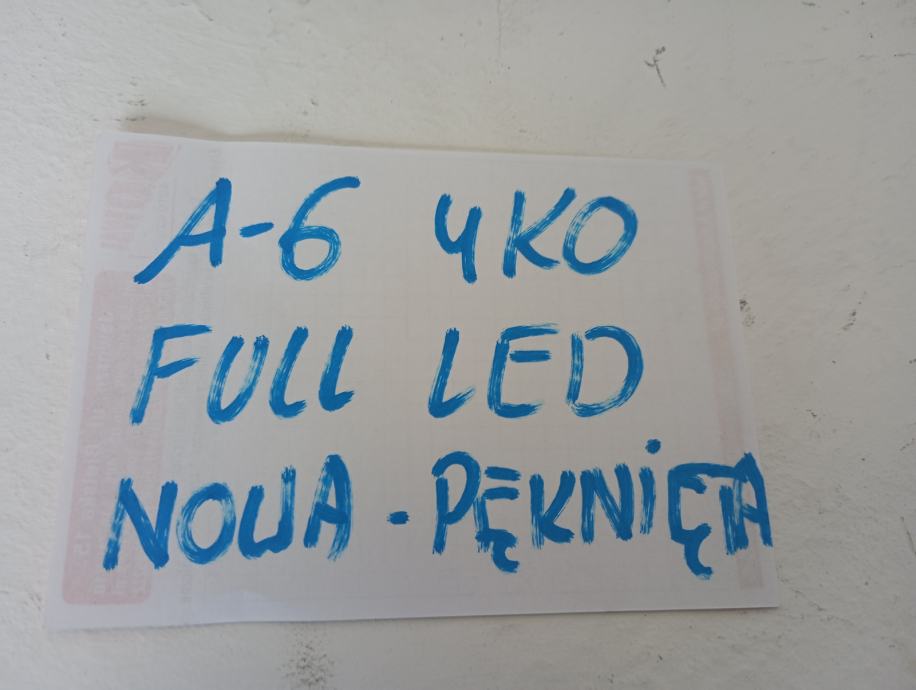 A-6 4KO
FULL LED
NOWA - PĘKNIĘTA